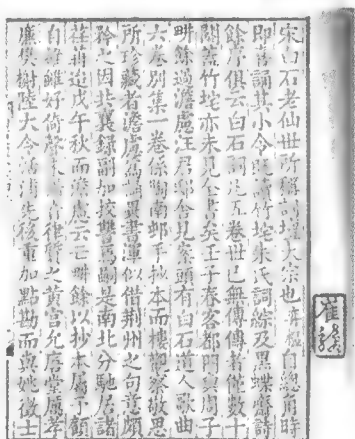 宋白石老仙世所稱詞壇大宗也鴻自總角時
即喜誦其小令旣讀竹垞朱氏詞綜及黑蝶齋詩
餘序俱云白石詞凡五卷世已無傳傳者僅數十
闋蓋竹垞亦未見全書矣壬子春客都門與周子
畊餘過澹慮汪君邸舍見案頭有白石道人歌曲
六卷別集一卷係陶南邨手抄本而樓觀察敬思
所珍藏者澹慮爲異書渾似借荆州之句意頗
矜之因共襄錄副加挍讐焉嗣是南北分馳居諸
荏苒迨戊午秋而澹慮云亡畊餘以抄本屬予顧
自雖好倚聲未嘗音律質之黃宮允唐堂厲孝
廉樊榭陸大令活浦先後重加點勘而與姚徵士